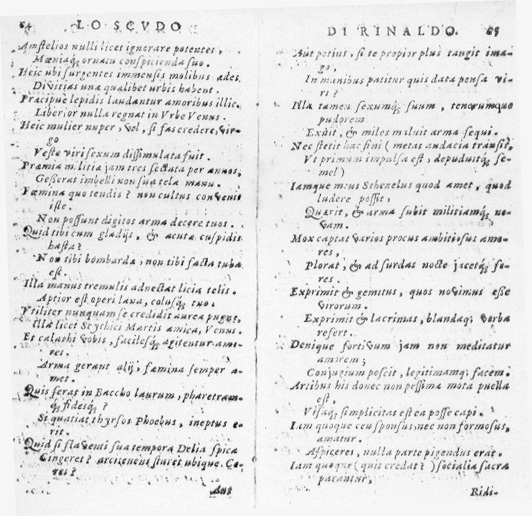 64 LO SCVDO
Amstelios nulli licet ignorare potentes,
Mœniaq; ornatu conspicienda suo.
Heic ubi surgentes immensis molibus ædes
Divitias una qualibet urbis habent.
Præcipue lepidis laudantur amoribus illic,
Liberior nulla regnat in Vrbe Venus.
Heic mulier nuper, vel, si fas credere, vir-
go
Veste viri sexum dissimulata fuit.
Præmia militiæ jam tres sectata per annos,
Gesserat imbelli non sua tela manu.
Fœmina quo tendis? non cultus convenit
iste.
Non possunt digitos arma decere tuos.
Quid tibi cum gladijs, & acuta cuspidis
hasta?
Non tibi bombarda, non tibi facta tuba
est.
Illa manus tremulis adnectat licia telis.
Aptior est operi lana, colusq; tuo,
Vtiliter nunquam se credidit aurea pugnæ,
Illa licet Scythici Martis amica, Venus.
Et calathi vobis, facilesq; agitentur amo-
res.
Arma gerant alij; fæmina semper a-
met.
Quis ferat in Baccho laurum, pharetram-
q; fidesq;?
Si quatiat thyrsos Phoebus, ineptus e-
rit.
Quid si flaventi sua tempora Delia spica
Cingeret? arcitenens staret ubique Ce-
res?
Aut
DI RINALDO. 65
Aut potius, si te propior plus tangit ima-
go,
In manibus patitur quis data pensa vi-
ri?
Illa tamen sexumq; suum, tenerumque
pudorem
Exuit, & miles induit arma sequi.
Nec stetit hac fini (metas audacia transit,
Vt primum impulsa est, depuduitq; se-
mel)
Iamque meus Sthenelus quod amet, quod
ludere possit,
Quærit, & arma subit militiamq; no-
vam.
Mox captat varios procus ambitiosus amo-
res,
Plorat, & ad surdas nocte jacetq; fo-
res.
Exprimit & gemitus, quos novimus esse
virorum.
Exprimit & lacrimas, blandaq; verba
refert.
Denique fortivum jam non meditatur
amorem;
Conjugium poscit, legitimamq; facem.
Artibus his donec non pessima mota puella
est,
Visaq; simplicitas est ea posse capi.
Iam quoque ceu sponsus, nec non formosus,
amatur.
Aspiceres, nulla parte pigendus erat.
Iam quoque (quis credat?) socialia sacra
parantur,
Ridi-